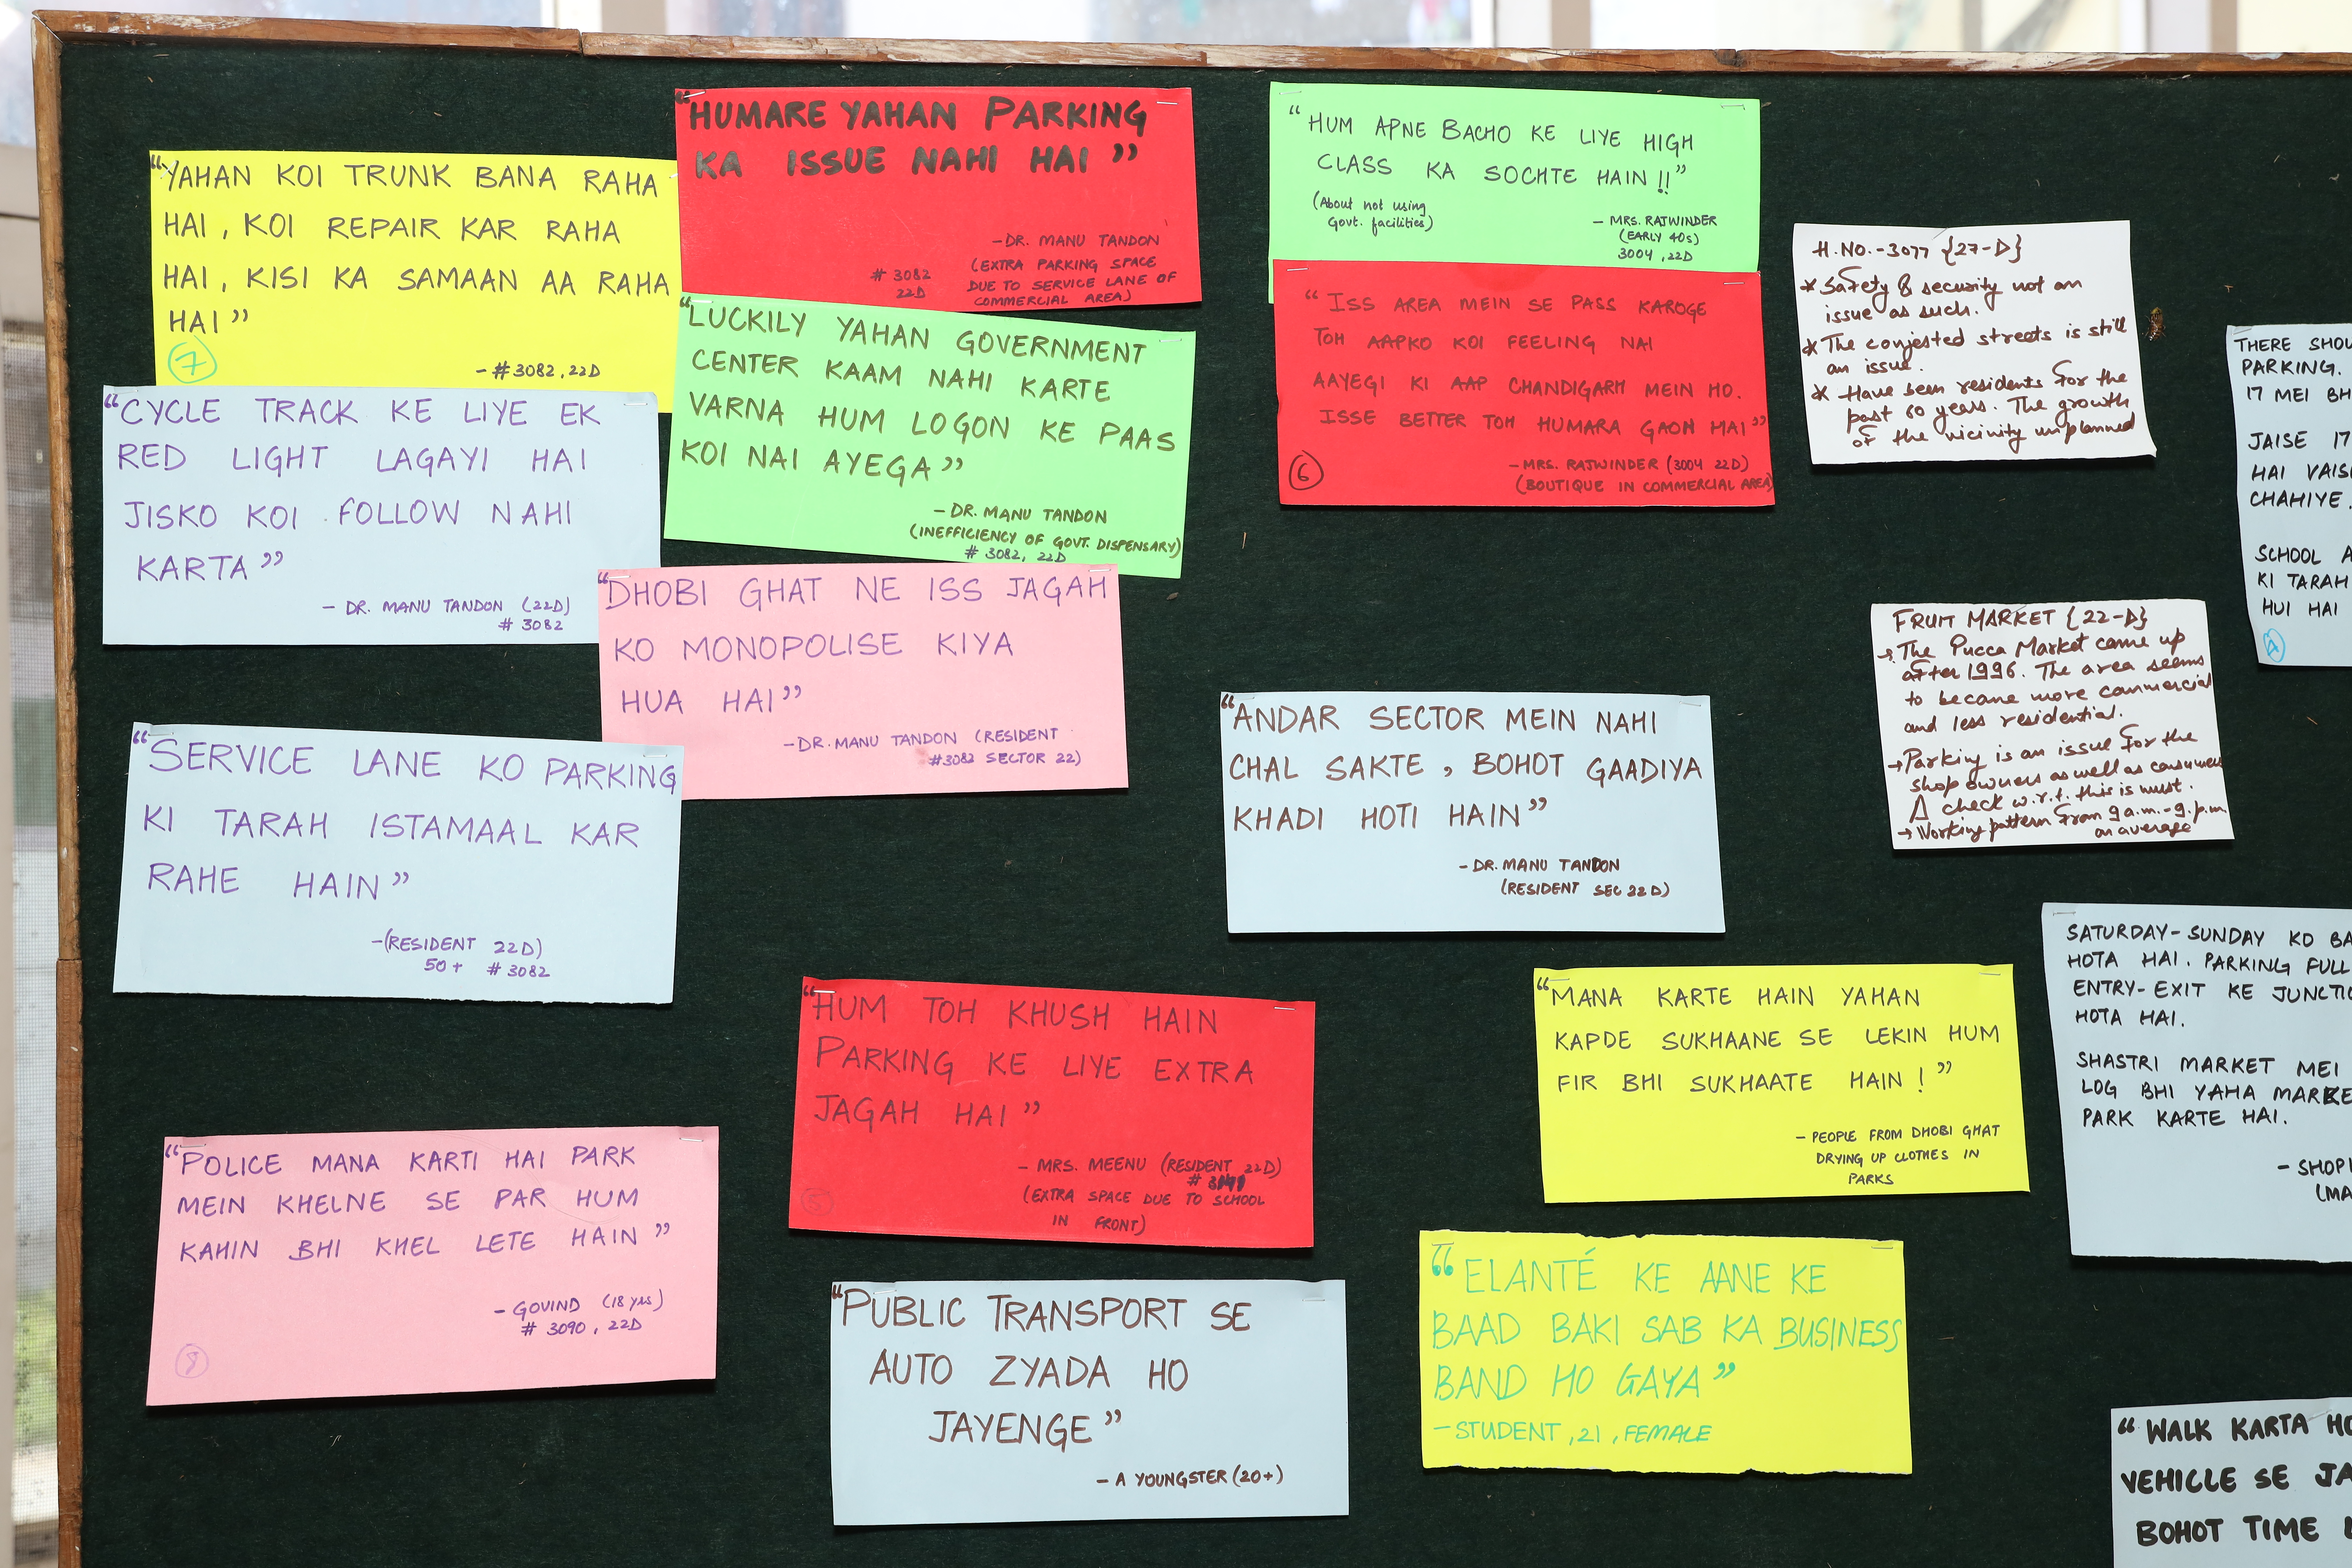 "YAHAN KOI TRUNK BANA RAHA
HAI, KOI REPAIR KAR RAHA
HAI, KISI KA SAMAAN AA RAHA
HAI"
7
- #3082, 22D
"HUMARE YAHAN PARKING
KA ISSUE NAHI HAI"
- DR. MANU TANDON
# 3082
22D
(EXTRA PARKING SPACE
DUE TO SERVICE LANE OF
COMMERCIAL AREA)
"HUM APNE BACHO KE LIYE HIGH
CLASS KA SOCHTE HAIN!!"
(About not using
Govt. facilities)
- MRS. RAJWINDER
(EARLY 40s)
3004, 22D
"CYCLE TRACK KE LIYE EK
RED LIGHT LAGAYI HAI
JISKO KOI FOLLOW NAHI
KARTA"
- DR. MANU TANDON (22D)
# 3082
"LUCKILY YAHAN GOVERNMENT
CENTER KAAM NAHI KARTE
VARNA HUM LOGON KE PAAS
KOI NAI AYEGA"
- DR. MANU TANDON
(INEFFICIENCY OF GOVT. DISPENSARY)
# 3082, 22D
"ISS AREA MEIN SE PASS KAROGE
TOH AAPKO KOI FEELING NAI
AAYEGI KI AAP CHANDIGARH MEIN HO.
ISSE BETTER TOH HUMARA GAON HAI"
- MRS. RAJWINDER (3004 22D)
(BOUTIQUE IN COMMERCIAL AREA)
6
H.NO.-3077 {27-D}
* Safety & security not an
issue as such.
* The conjested streets is still
an issue.
* Have been residents for the
past 60 years. The growth
of the vicinity unplanned
THERE SHOU
PARKING.
17 MEI BH
JAISE 17
HAI VAIS
CHAHIYE.
SCHOOL A
KI TARAH
HUI HAI
A
"DHOBI GHAT NE ISS JAGAH
KO MONOPOLISE KIYA
HUA HAI"
- DR. MANU TANDON (RESIDENT
#3082 SECTOR 22)
FRUIT MARKET {22-D}
→ The Pucca Market came up
after 1996. The area seems
to became more commercial
and less residential.
→ Parking is an issue for the
shop owners as well as consumers
A check w.r.t. this is must.
→ Working pattern from 9 a.m.-9.p.m.
on average
"SERVICE LANE KO PARKING
KI TARAH ISTAMAAL KAR
RAHE HAIN"
- (RESIDENT 22D)
50+ #3082
"ANDAR SECTOR MEIN NAHI
CHAL SAKTE, BOHOT GAADIYA
KHADI HOTI HAIN"
- DR. MANU TANDON
(RESIDENT SEC 22D)
"HUM TOH KHUSH HAIN
PARKING KE LIYE EXTRA
JAGAH HAI"
- MRS. MEENU (RESIDENT 22D)
(EXTRA SPACE DUE TO SCHOOL
IN FRONT)
5
"MANA KARTE HAIN YAHAN
KAPDE SUKHAANE SE LEKIN HUM
FIR BHI SUKHAATE HAIN!"
- PEOPLE FROM DHOBI GHAT
DRYING UP CLOTHES IN
PARKS
SATURDAY-SUNDAY KO BA
HOTA HAI. PARKING FULL
ENTRY-EXIT KE JUNCTIO
HOTA HAI.
SHASTRI MARKET MEI
LOG BHI YAHA MARKE
PARK KARTE HAI.
- SHOP
(MA
"POLICE MANA KARTI HAI PARK
MEIN KHELNE SE PAR HUM
KAHIN BHI KHEL LETE HAIN"
- GOVIND (18 yrs)
# 3090, 22D
8
"PUBLIC TRANSPORT SE
AUTO ZYADA HO
JAYENGE"
- A YOUNGSTER (20+)
"ELANTÉ KE AANE KE
BAAD BAKI SAB KA BUSINESS
BAND HO GAYA"
- STUDENT, 21, FEMALE
"WALK KARTA HO
VEHICLE SE JA
BOHOT TIME